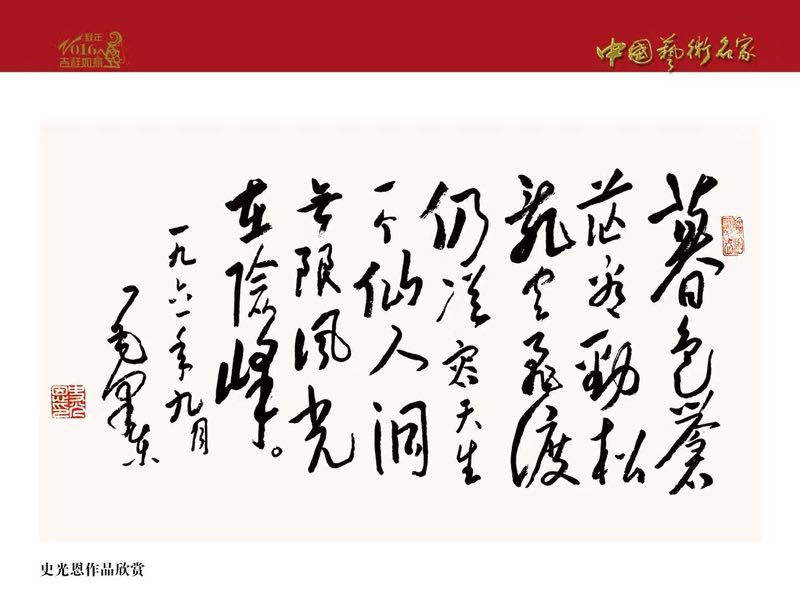 猴年
2016
吉祥如意
中國藝術名家
暮色蒼
茫看勁松
亂云飛渡
仍從容天生
一个仙人洞
無限風光
在險峰。
一九六一年九月
毛澤东
史光恩作品欣赏